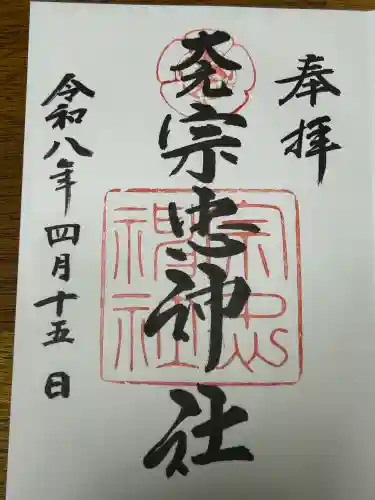 奉拝
大元宗忠神社
宗忠
神社
令和八年四月十五日